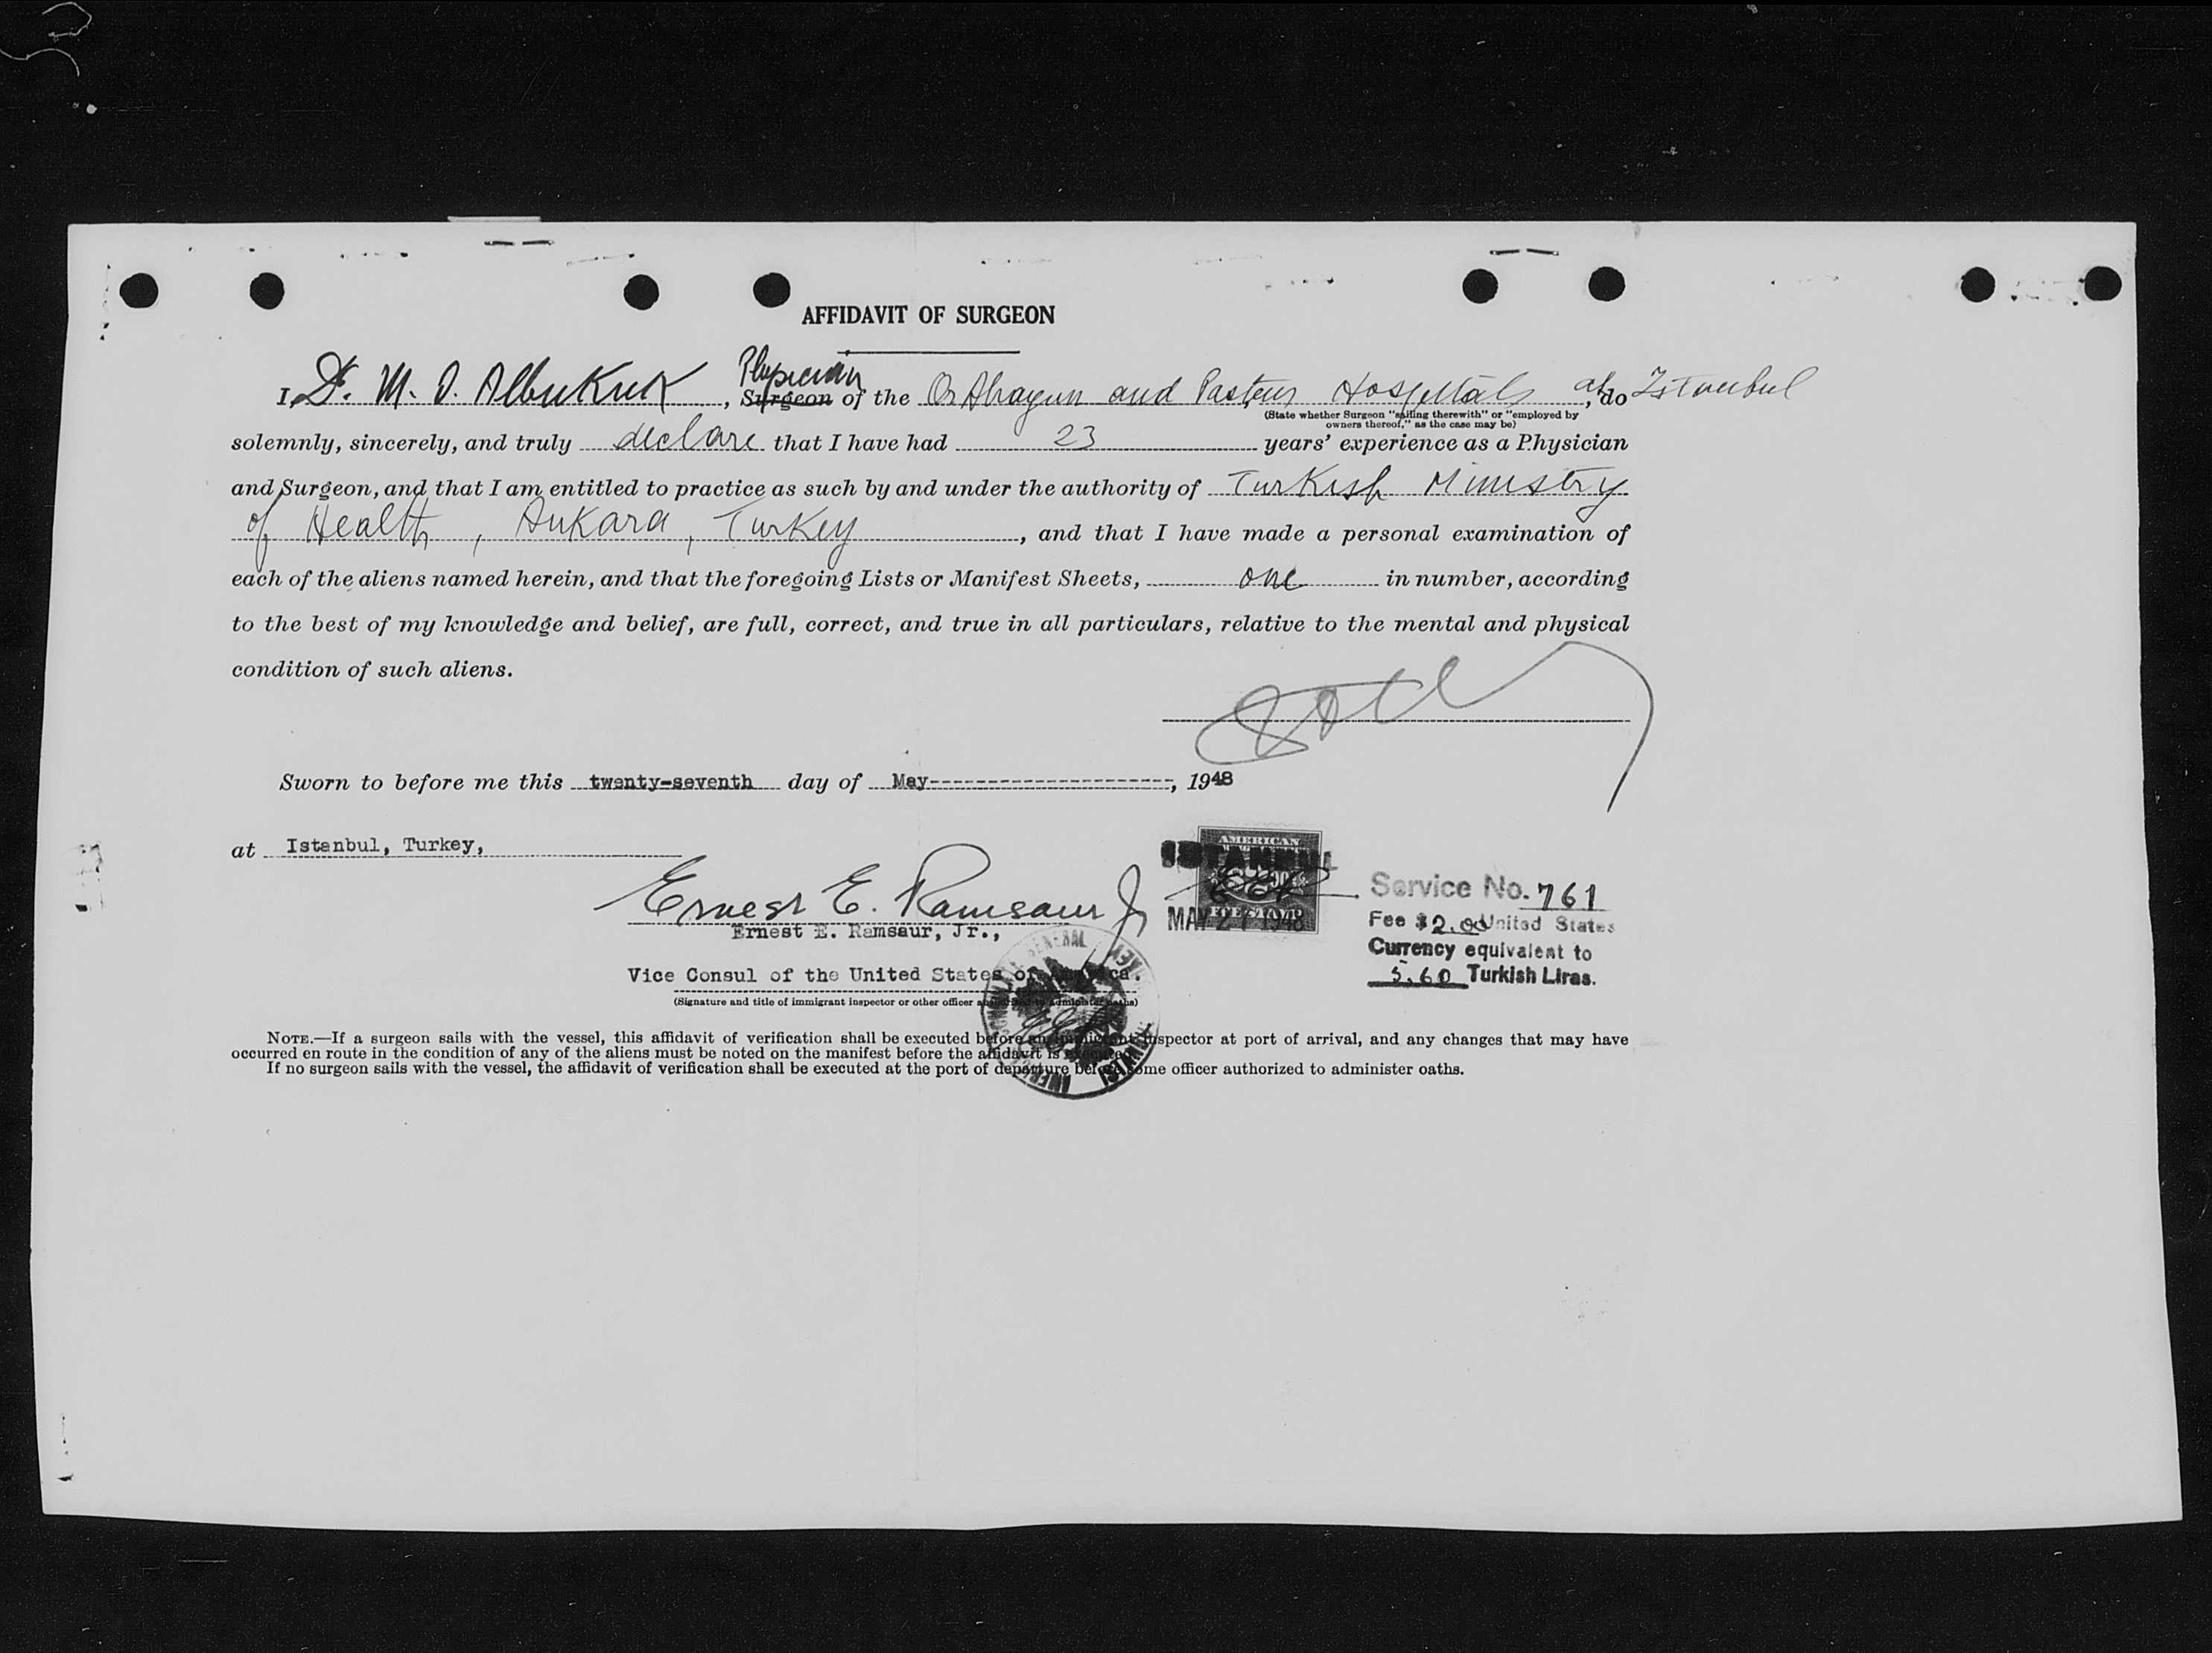 AFFIDAVIT OF SURGEON
I, Dr. M. D. Albukrek, Physician Surgeon of the Or Ahayun and Pasteur Hospitals, at Istanbul do
(State whether Surgeon "sailing therewith" or "employed by
owners thereof," as the case may be)
solemnly, sincerely, and truly declare that I have had 23 years' experience as a Physician
and Surgeon, and that I am entitled to practice as such by and under the authority of Turkish Ministry
of Health, Ankara, Turkey, and that I have made a personal examination of
each of the aliens named herein, and that the foregoing Lists or Manifest Sheets, one in number, according
to the best of my knowledge and belief, are full, correct, and true in all particulars, relative to the mental and physical
condition of such aliens.
Sworn to before me this twenty-seventh day of May----------------------, 1948
at Istanbul, Turkey,
AMERICAN
ISTANBUL
FEE STAMP
MAY 27 1948
Ernest E. Ramsaur Jr
Ernest E. Ramsaur, Jr.,
Vice Consul of the United States of America.
(Signature and title of immigrant inspector or other officer authorized to administer oaths)
Service No. 761
Fee $2.00 United States
Currency equivalent to
5.60 Turkish Liras.
NOTE.—If a surgeon sails with the vessel, this affidavit of verification shall be executed before an immigrant inspector at port of arrival, and any changes that may have
occurred en route in the condition of any of the aliens must be noted on the manifest before the affidavit is executed.
If no surgeon sails with the vessel, the affidavit of verification shall be executed at the port of departure before some officer authorized to administer oaths.